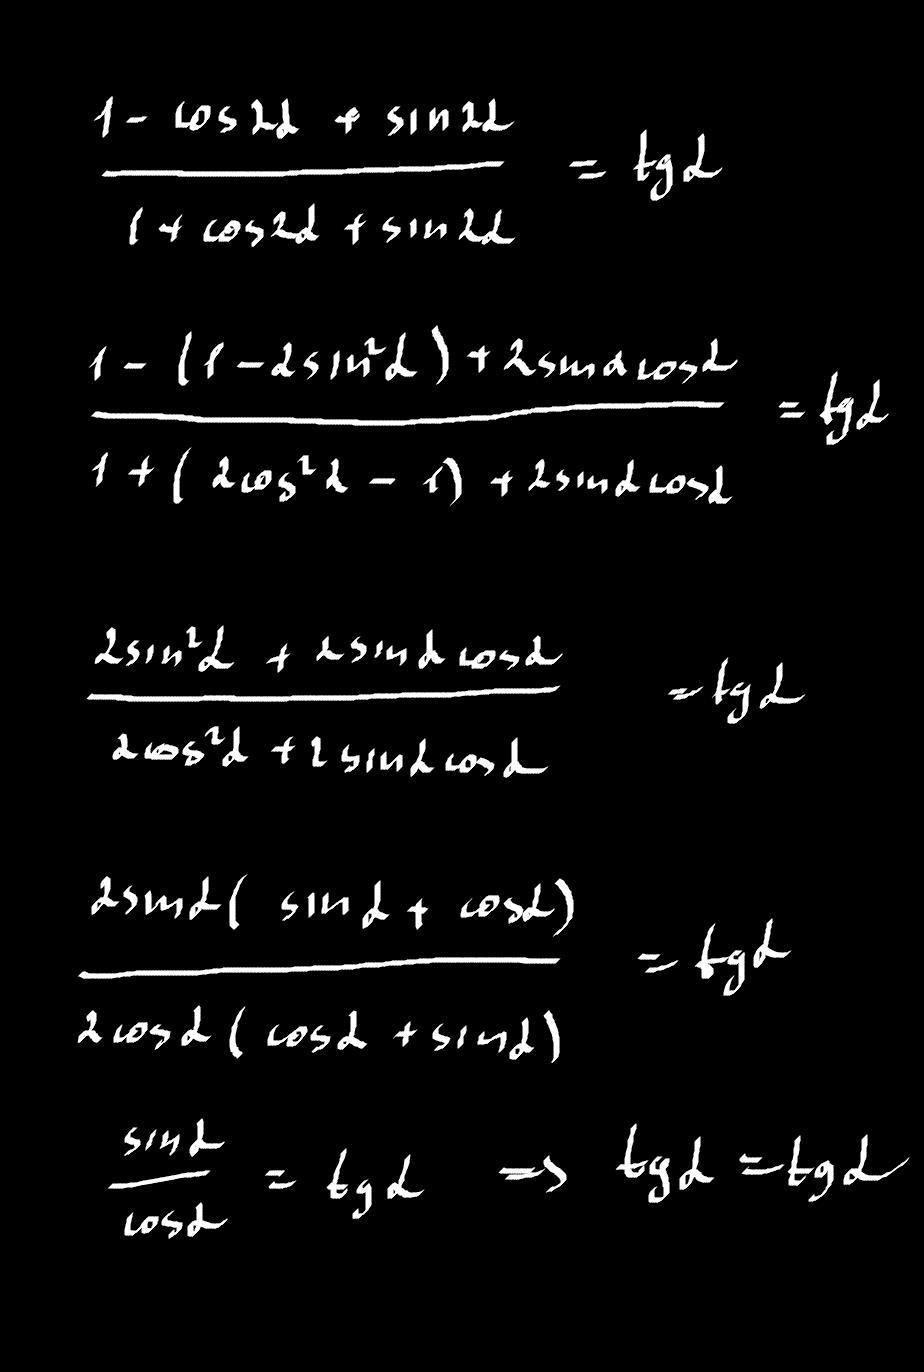 1 - cos2α + sin2α
/ 1 + cos2α + sin2α = tgα
1 - (1 - 2sin²α) + 2sinαcosα
/ 1 + (2cos²α - 1) + 2sinαcosα = tgα
2sin²α + 2sinαcosα
/ 2cos²α + 2sinαcosα = tgα
2sinα(sinα + cosα)
/ 2cosα(cosα + sinα) = tgα
sinα / cosα = tgα ⇒ tgα = tgα